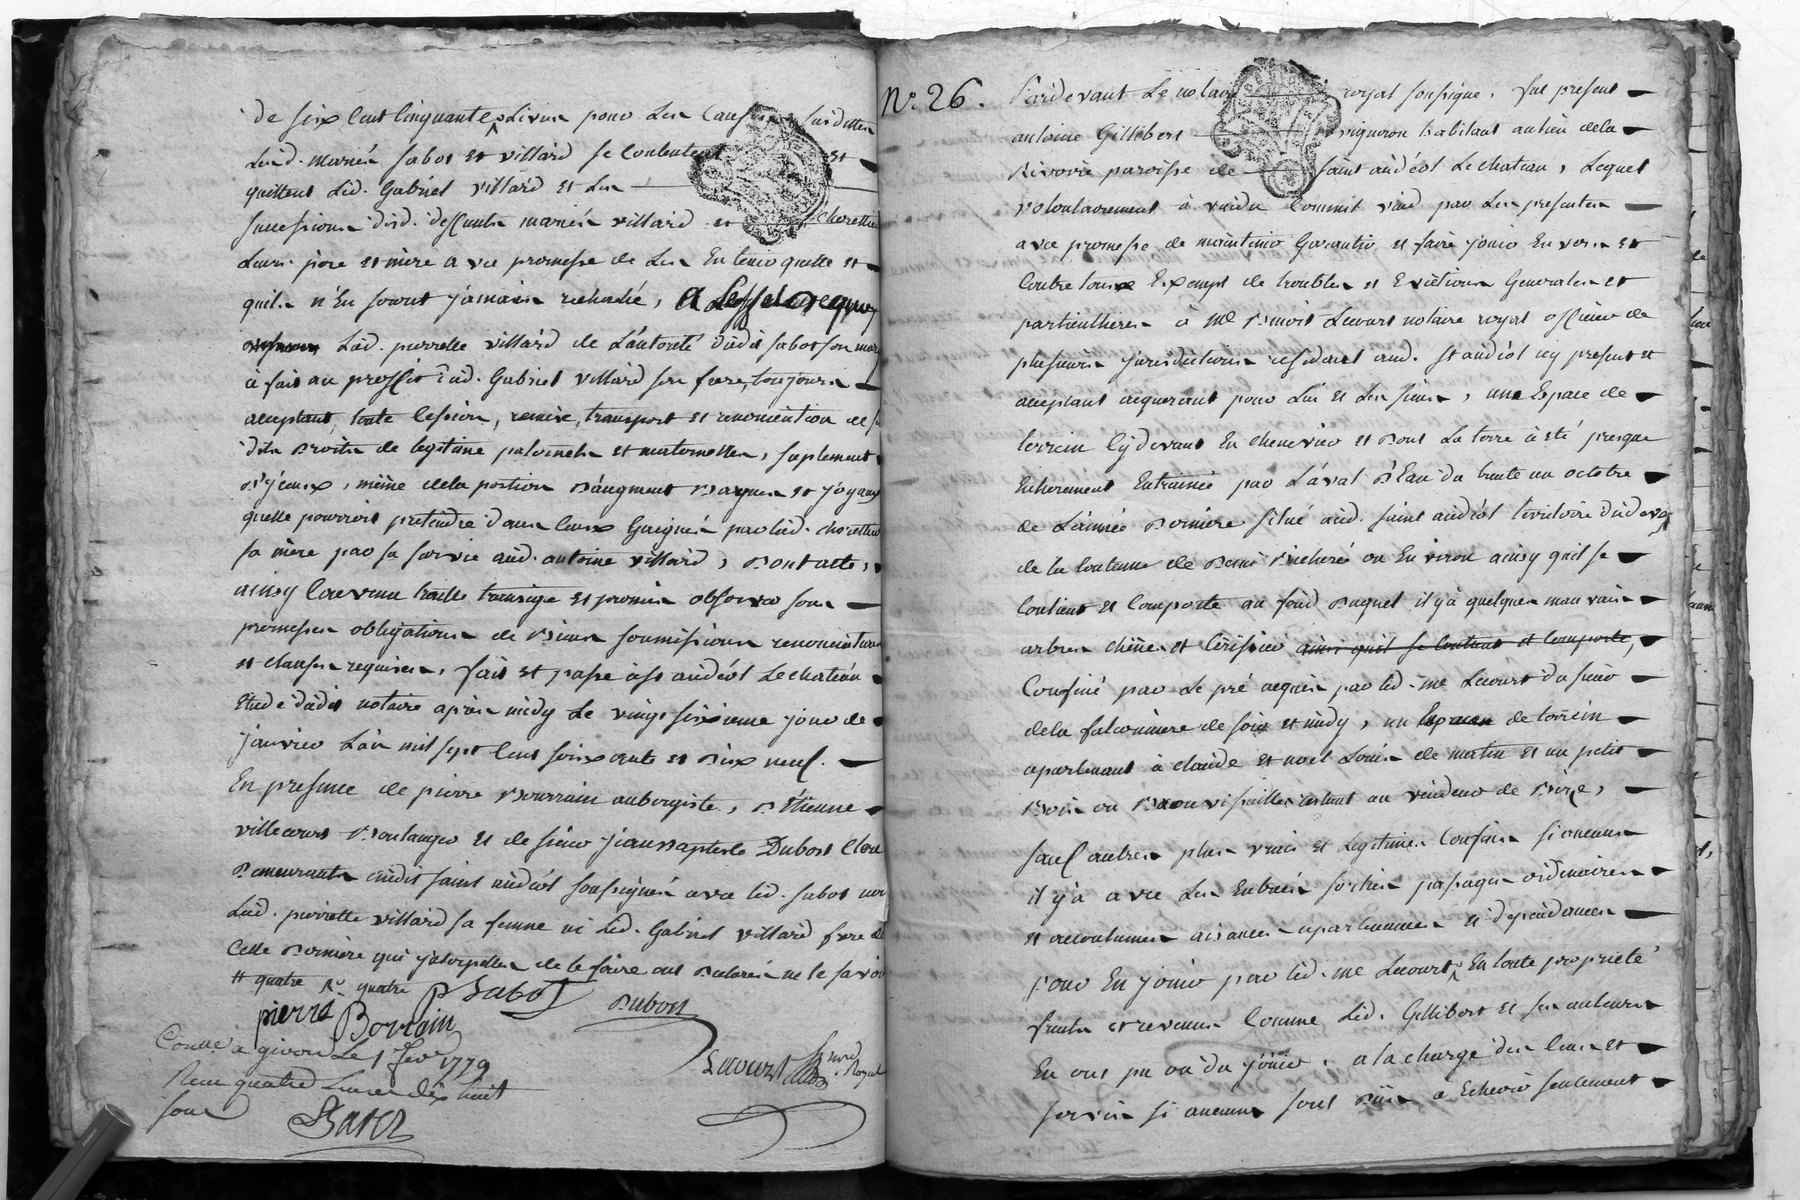 de six Cent Cinquante Livres pour Les Causes susdittes
Led. mariés sabot et villard se Contentent et
quittent Led. Gabriel villard et Les
successions dud. deffunts mariés villard et chorettier
Leurs pere et mere avec promesse de Les En tenir quitte et
quils n'En soient jamais recherché, a Leffet
Lad. pierrette villard de L'autorité dudit sabot son mary
à fait au proffit dud. Gabriel villard son frere toujours
acceptant, toute Cession, remise, transport et renonciation de ses
dits Droits de legitime paternelle et maternelle, suplement
D'yceux, même de la portion D'augment Bagues et joyaux
quelle pourroit pretendre dans Ceux Gaignés par lad. chorettier
sa mere par sa survie aud. antoine villard, Dont acte,
ainsy Convenu traitté transigé et promis observer sous
promesses obligations de Biens soumissions renonciations
et clauses requises, fait et passé à st andéol Le chateau
Etude dudit notaire après midy Le vingt sixieme jour de
janvier L'an mil sept Cent soixante et Dix neuf.
En presence de pierre Bourrain aubergiste, D'Etienne
villecourt Boulanger et de sieur jean Baptiste Dubost Clerc
Demeurants audit saint andéol soussignés avec led. sabot non
Lad. pierrette villard sa femme ni Led. Gabriel villard frere de
Cette Derniere qui jnterpellés de le faire ont Declaré ne le savoir
# quatre Rr quatre P Sabot
Dubost
pierre Borrain
Conllé a givors Le 1er fevr 1779
Lecourt nore Royal
Reçu quatre Livres dix huit
sous
N.° 26. Pardevant Le notaire royal soussigné, fut present
antoine Gillibert vigneron habitant au lieu de la
Rivoire paroisse de saint andéol Le chateau, Lequel
volontairement à vendu Comme il vend par Les presentes
avec promesse de maintenir Garantir et faire jouir Envers et
Contre tous Exempt de troubles et Evictions Generales et
particullieres à Me Benoit Lecourt notaire royal officier de
plusieurs jurisdictions residant aud. st andéol icy present et
acceptant acquerant pour Lui et Les siens, une Espace de
terrein Cydevant En chenevier et Dont La terre à eté presque
Entierement Entrainée par L'aval D'Eau du trente un octobre
de L'année Derniere situé aud. saint andéol territoire dudevay
de la Contenue de Demi Bicherée ou Environ ainsy quil se
Contient et Comporte au fond Duquel il y à quelques mauvais
arbres chênes et Cérisier ainsi quil se Contient et Comporte,
Confiné par Le pré acquis par led. me Lecourt du sieur
de la falconniere de soir et midy, un Espace de terrein
apartenant à claude et noel Louis de matin et un petit
Bois ou Brouvissailles restant au vendeur de Bize,
sauf autres plus vrais et Legitimes Confins si aucuns
il y à avec Les Entrées sorties passages ordinaires
et accoutumés aisances apartenances et dependances
pour En jouir par led. me Lecourt En toute proprieté
fruits et revenus Comme Led. Gillibert et ses auteurs
En ont pu ou du jouir, a la charge des Cens et
servis si aucuns sont Dus à Echeoir seulement